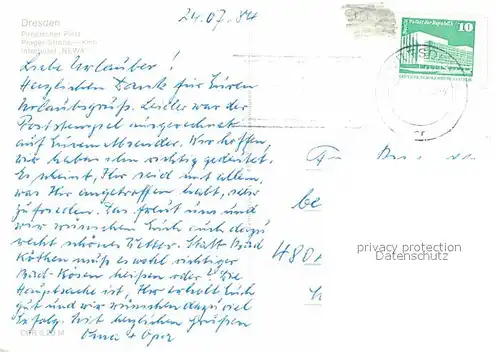 Dresden
Pirnaischer Platz
Prager Straße — Kino
Interhotel "NEWA"
24.07.84
Liebe Urlauber!
Herzlichen Dank für Euren
Urlaubsgruß. Leider war der
Poststempel ausgerechnet
auf Eurem Absender. Wir hoffen,
wir haben ihn richtig gedeutet.
Es scheint, Ihr seid mit allem,
was Ihr angetroffen habt, sehr
zufrieden. Das freut uns und
wir wünschen Euch auch dazu
recht schönes Wetter. Statt Bad
Köthen muß es wohl richtiger
Bad-Kösen heißen oder? Die
Hauptsache ist, Ihr erholt Euch
gut und wir wünschen dazu viel
Erfolg. Mit herzlichen Grüßen
Oma + Opa
DDR 0,20 M
10
be
480
privacy protection
DAMALS